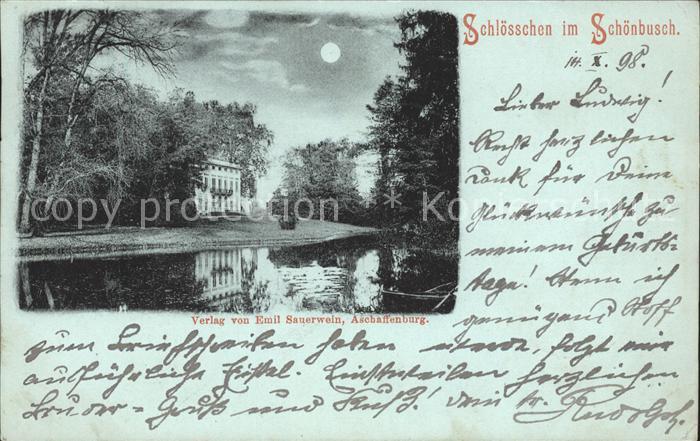 Schlösschen im Schönbusch.
14. X. 98.
Lieber Ludwig!
Recht herzlichen
Dank für Deine
Glückwünsche zu
meinem Geburts-
tage! Wenn ich
genügend Stoff
zum Briefschreiben haben werde, folgt eine
ausführliche Epistel. Einstweilen herzlichen
Bruder-Gruß und Kuß! Dein tr. Rudolph.
Verlag von Emil Sauerwein, Aschaffenburg.
copyright protection